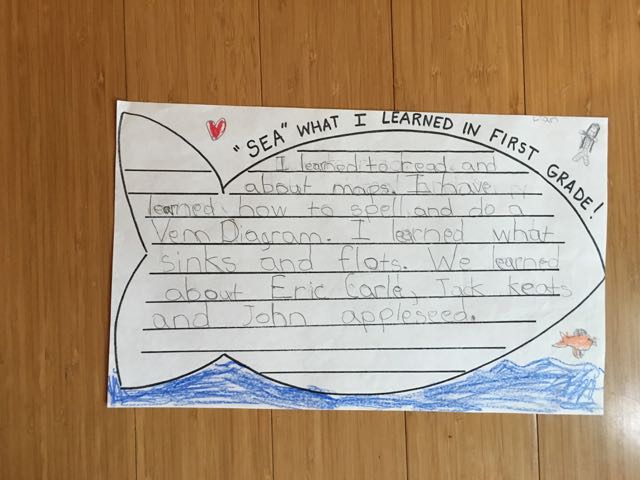 "SEA" WHAT I LEARNED IN FIRST GRADE!
I learned to read and
about maps. I have
learned how to spell and do a
Venn Diagram. I learned what
sinks and flots. We learned
about Eric Carle, Jack keats
and John appleseed.